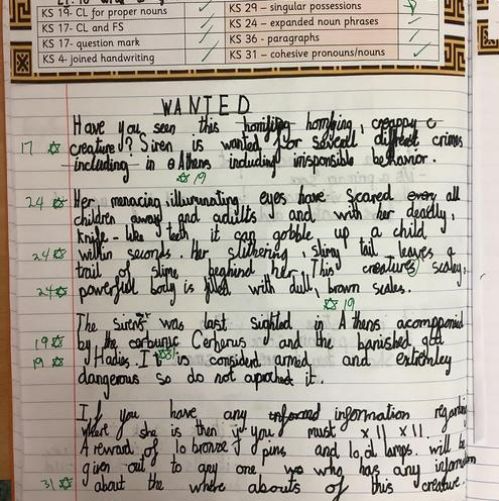 KS 19- CL for proper nouns
KS 17- CL and FS
KS 17- question mark
KS 4- joined handwriting
KS 29 – singular possessions
KS 24 – expanded noun phrases
KS 36 - paragraphs
KS 31 – cohesive pronouns/nouns
WANTED
Have you seen this horrifing, creappy
17 creature? Siren is wanted for different crimes
including in Athens including inisponsible behavior.
19
24 Her menacing illuminating eyes have scared all
children away and adults and with her deadly,
knife-like teeth it can gobble up a child
24 within seconds. Her slithering, slimy tail leaves a
trail of slime beghind her. This creatures scaley,
24 powerful body is filled with dull, brown scales.
19
The siren was last sighted in Athens acompponied
19 by the Cerberus and the banished god
19 Hadies. It is considerd armed and extremley
31
dangerous so do not it.
If you have any information regarding
where she is then you must x11 x11.
A reward of 10 bronze pins and 10 oil lamps. will be
given out to any one who has any
31 about the where abouts of this creature.